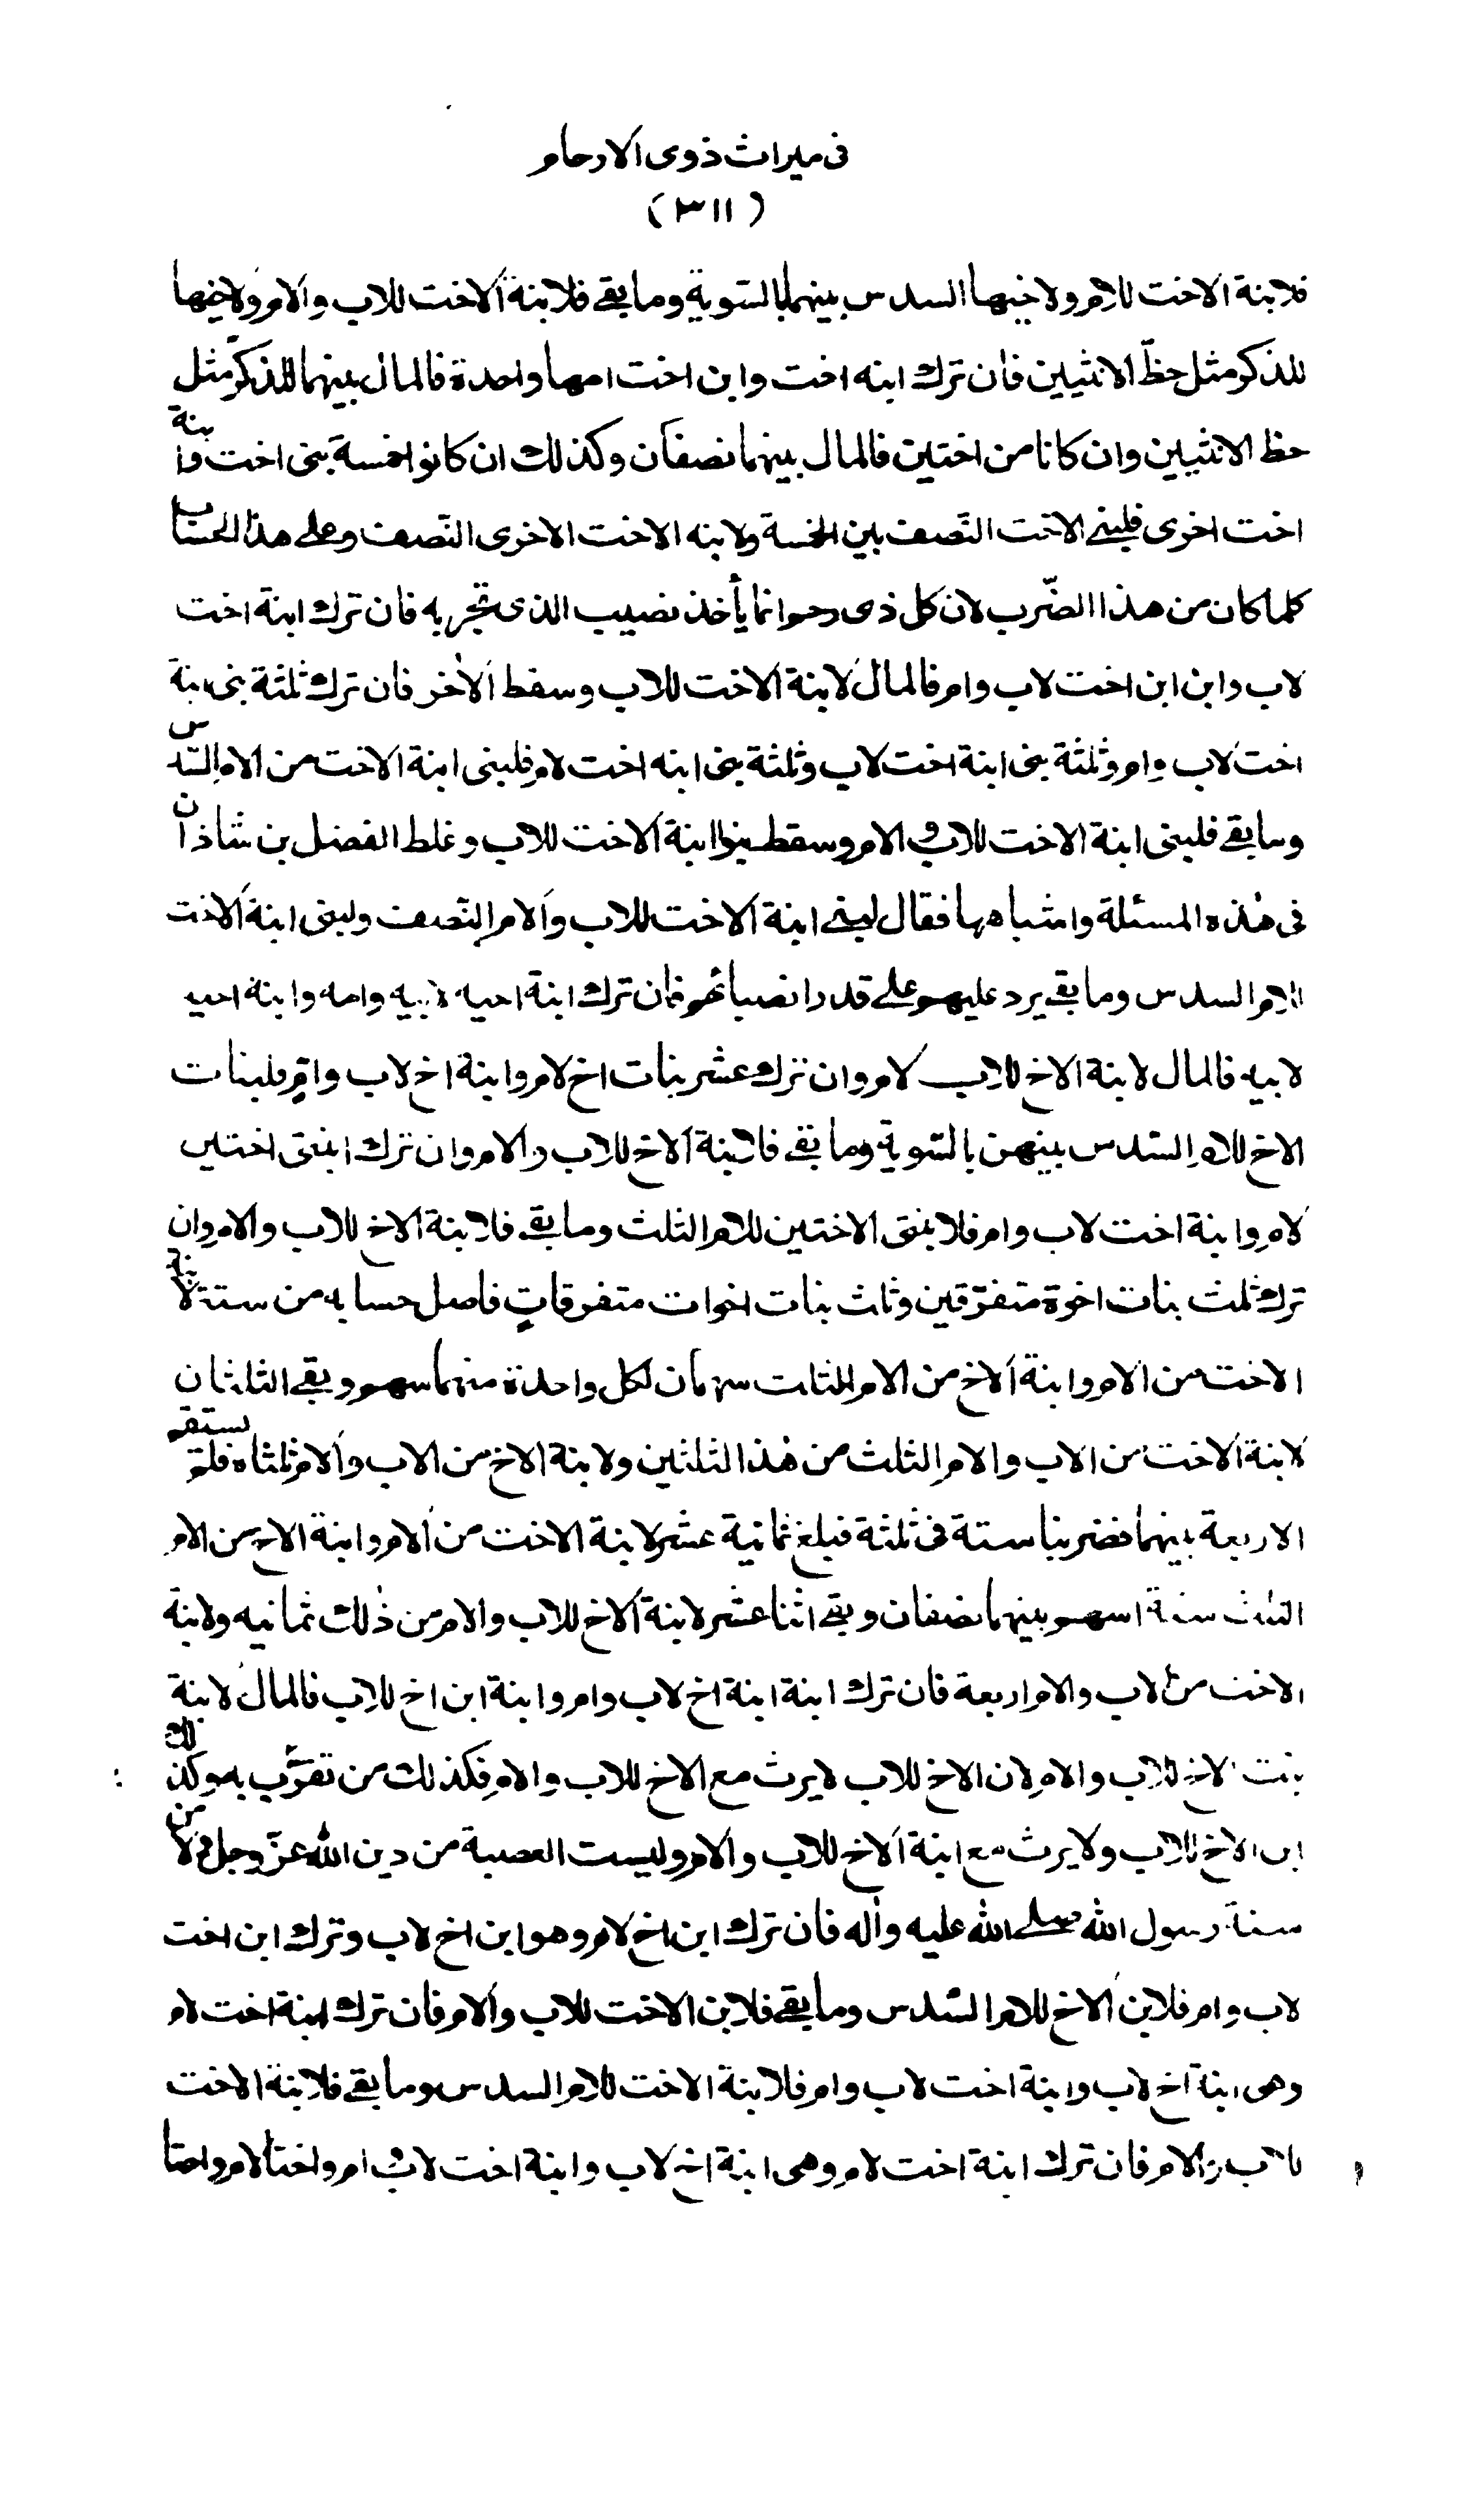 فى ميراث ذوى الارحام
(٣١١)
فلابنة الاخت للام ولاخيها السدس بينهما بالسّوية وما بقى فلابنة الاخت للاب والام ولاخيها
للذكر مثل حظّ الانثيين فان ترك ابنه اخت وابن اخت امهما واحدة فالمال بينهما للذكر مثل
حظ الانثيين وان كانا من اختين فالمال بينهما نصفان وكذلك ان كانوا خمسة بنى اخت وابنة
اخت اخرى فلبنى الاخت النّصف بين الخمسة ولابنه الاخت الاخرى النّصف وعلى هذا الحساب
كلما كان من هذا الضّرب لان كل ذى رحم انما يأخذ نصيب الذى يجر به فان ترك ابنة اخت
لاب وابن ابن اخت لاب وام فالمال لابنة الاخت للاب وسقط الاخر فان ترك ثلثة بنى ابنة
اخت لاب وام وثلثة بنى ابنة اخت لاب وثلثة بنى ابنه اخت لام فلبنى ابنة الاخت من الام السّدس
وما بقى فلبنى ابنة الاخت للاب والام وسقط بنوا ابنة الاخت للاب وغلط الفضل بن شاذان
فى هذه المسئلة واشباهها فقال لبنى ابنة الاخت للاب والام النّصف ولبنى ابنة الاخت
للام السدس وما بقى يرد عليهم على قدر انصبائهم فان ترك ابنة اخيه لابيه وامه وابنة اخيه
لابيه فالمال لابنة الاخ للاب لام وان ترك عشر بنات اخ لام وابنة اخ لاب وام فلبنات
الاخ للام السّدس بينهن بالسّوية وما بقى فلابنة الاخ للاب والام وان ترك ابنتى اختين
لام وابنة اخت لاب وام فلابنتى الاختين للام الثلث وما بقى فلابنة الاخ للاب والام وان
ترك ثلث بنات اخوة متفرّقين وثلث بنات اخوات متفرقات فاصل حسابه من ستة لابنة
الاخت من الام وابنة الاخ من الام الثلث سهمان لكل واحدة منهما سهم وبقى الثلثان
لابنة الاخت من الاب والام الثلث من هذا الثلثين ولابنة الاخ من الاب والام ثلثاه فلم تستقم
الاربعة بينهما فضربنا ستة فى ثلثة فبلغ ثمانية عشر لابنة الاخت من الام وابنة الاخ من الام
الثلث ستة اسهم بينهما نصفان وبقى اثنا عشر لابنة الاخ للاب والام من ذلك ثمانيه ولابنة
الاخت من الاب والام اربعة فان ترك ابنة ابنة اخ لاب وام وابنة ابن اخ للاب فالمال لابنة
بنت الاخ للاب والام لان الاخ للاب لا يرث مع الاخ للاب والام فكذلك من تقرّب به وكذلك
ابن الاخ للاب ولا يرث مع ابنة الاخ للاب والام وليست العصبة من دين الله عزّ وجل ولا من
سنة رسول الله صلى الله عليه واله فان ترك ابن اخ لام وهو ابن اخ لاب وترك ابن اخت
لاب وام فلابن الاخ للام السّدس وما بقى فلابن الاخت للاب والام فان ترك ابنة اخت لام
وهى ابنة اخ لاب وابنة اخت لاب وام فلابنة الاخت للام السدس وما بقى فلابنة الاخت
للاب والام فان ترك ابنة اخت لام وهى ابنة اخ لاب وابنة اخت لاب وام واختا لام واختا